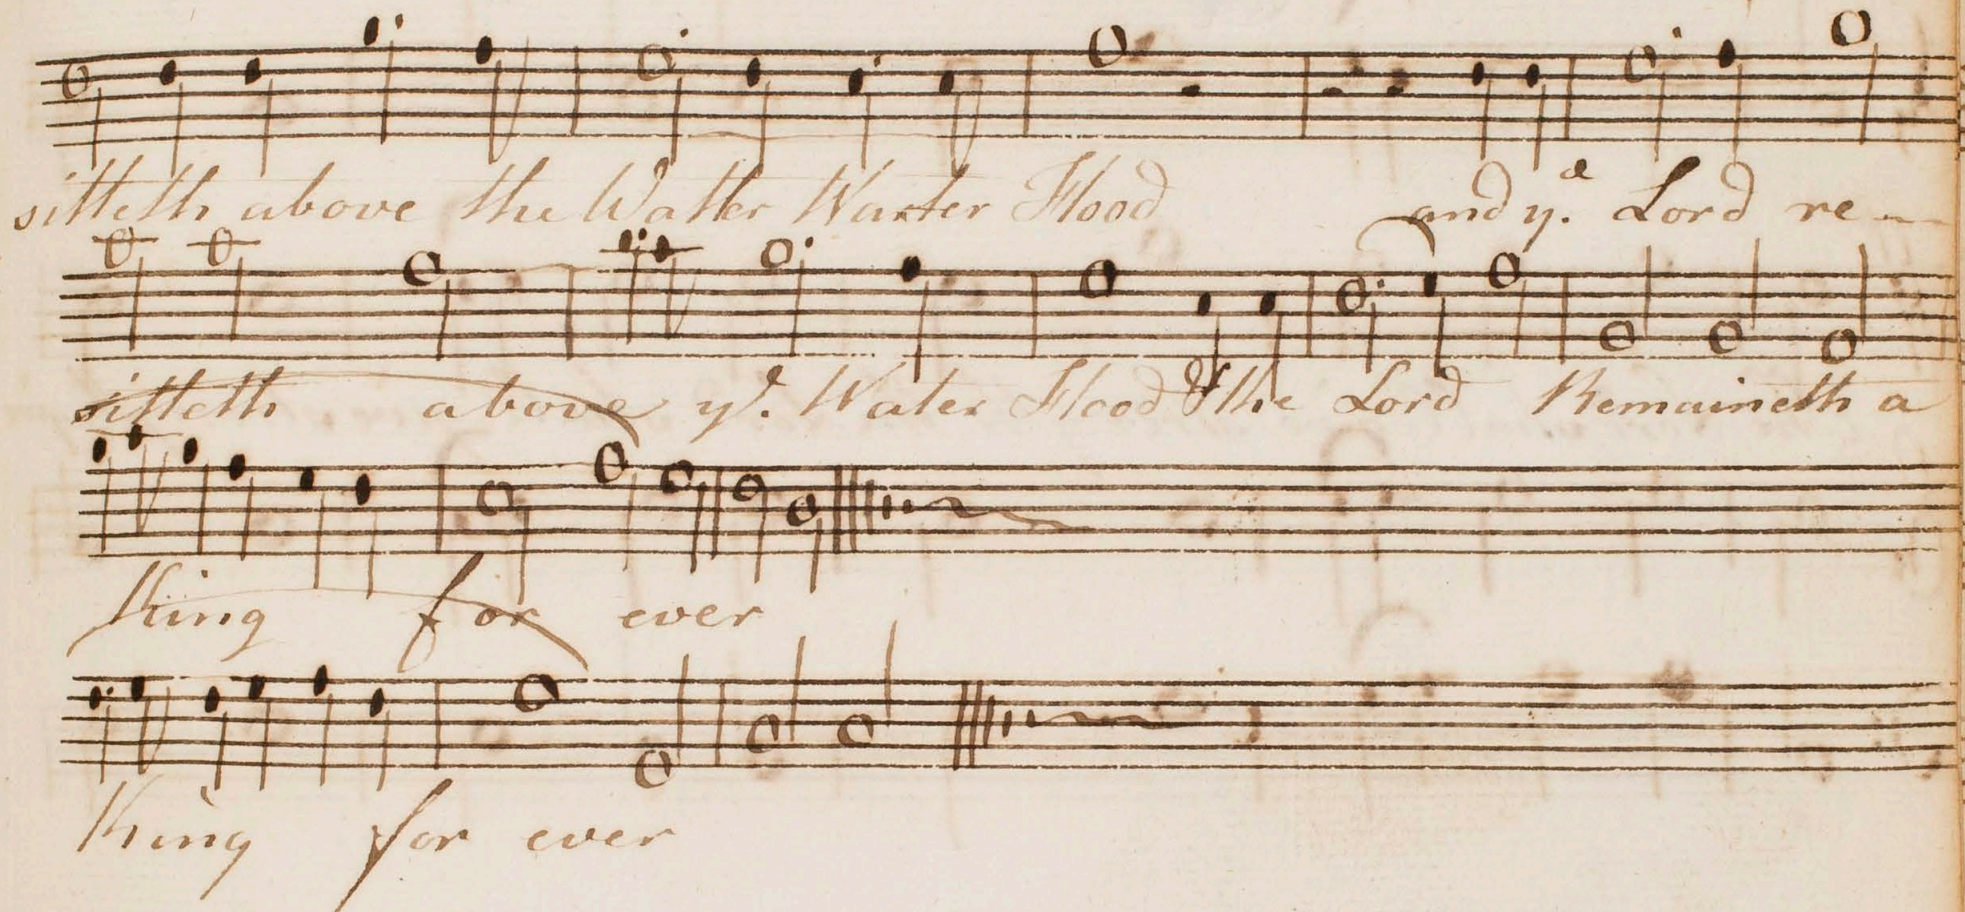 sitteth above the Watter Warter Flood and y.e Lord re-
sitteth above ye. Water Flood & the Lord Remaineth a
King for ever
King for ever